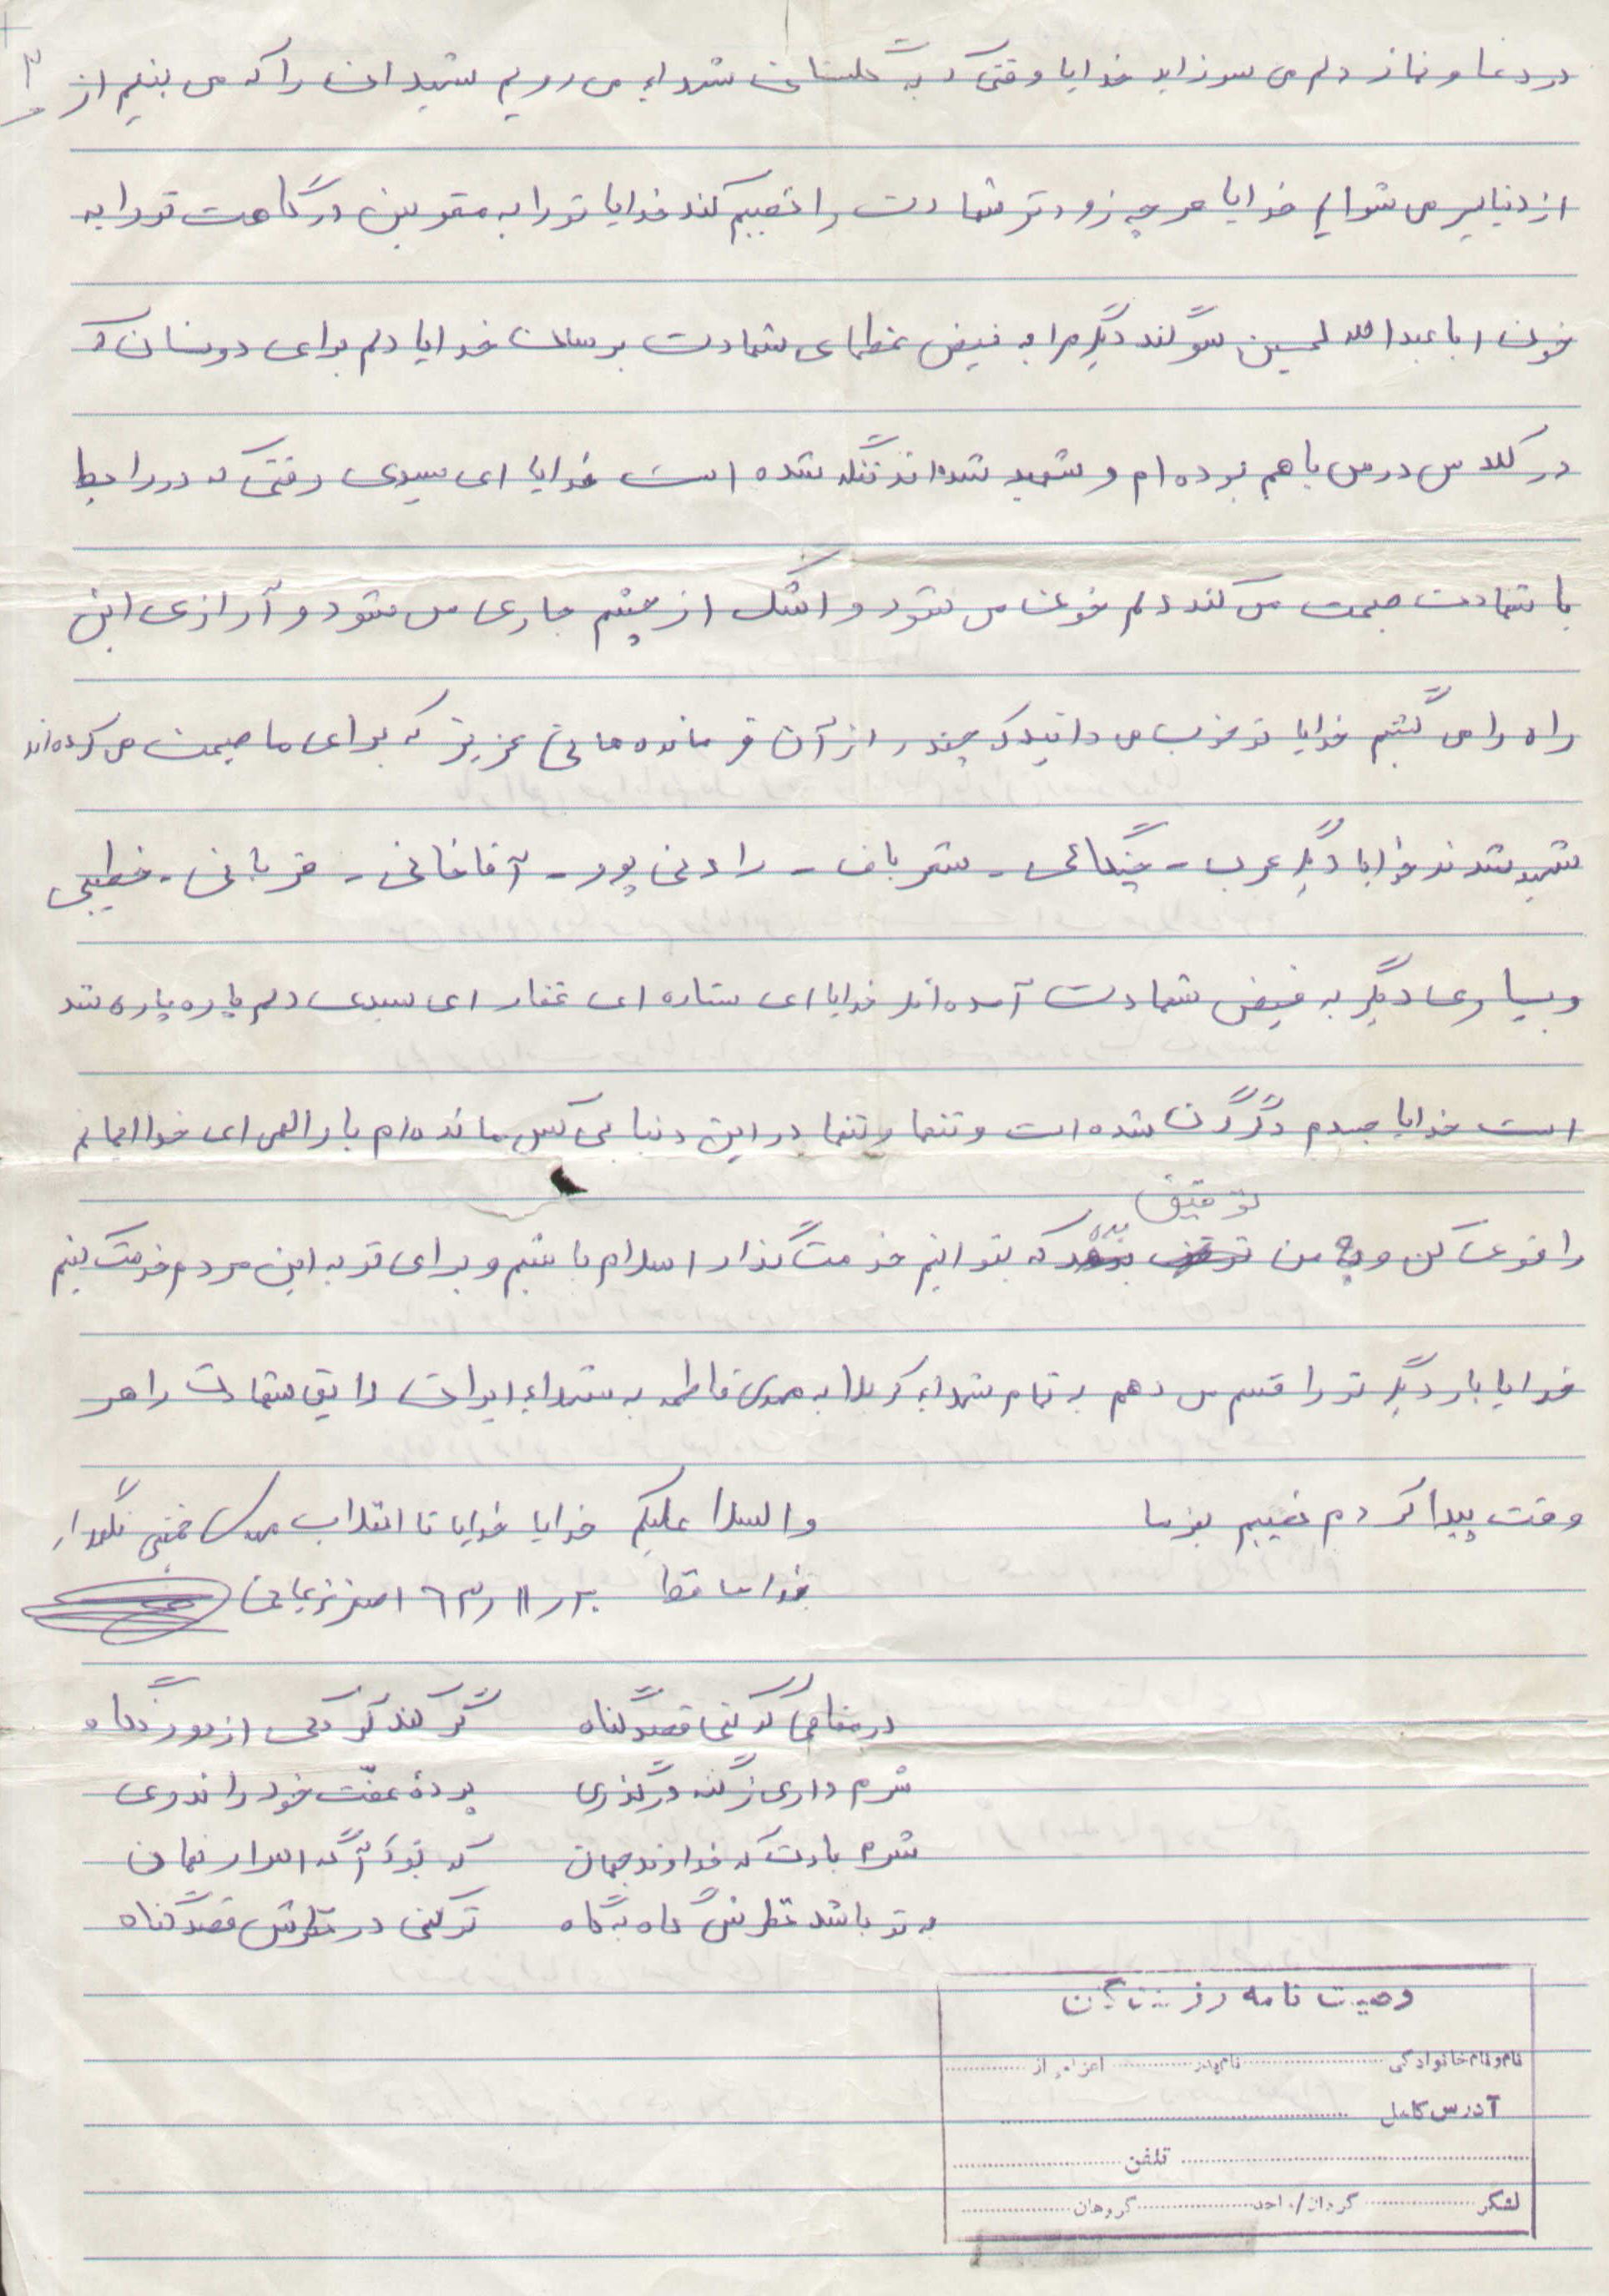 ۳
در دعا و نماز دلم می سوزاند خدایا وقتی که به گلستان شهداء می رویم شهیدان را که می بینم از
از دنیا سیر می شوم خدایا هر چه زودتر شهادت را نصیبم کند خدایا تو را به مقربین درگاهت تو را به
خون ابا عبدالله لحسین سوگند دیگر مرا به فیض عظمای شهادت برسان خدایا دلم برای دوستان که
در کلاس درس با هم بوده ام و شهید شده اند تنگ شده است خدایا ای سیدی وقتی که در رابطه
با شهادت صحبت می کند دلم خون می شود و اشک از چشم جاری می شود و آرازی این
راه را می کشم خدایا تو خوب می دانید که چقدر از آن فرمانده هانی عزیز که برای ما صحبت می کرده اند
شهید شدند خدایا دیگر عرب - چنگائی - شعرباف - رادنی پور - آقاخانی - قربانی - خطیبی
و بسیاری دیگر به فیض شهادت آمده اند خدایا ای ستاره ای غفار ای سیدی دلم پاره پاره شد
است خدایا صبرم دگرگون شده است و تنها و تنها در این دنیا بی کس مانده ام بار الهی ای خدا ایمانم
توفیق
را قوی کن و به من بده که بتوانم خدمت گذار اسلام باشم و برای تو به این مردم خدمت کنم
خدایا بار دیگر تو را قسم می دهم به تمام شهداء کربلا به مهدی فاطمه به شهداء ایران لایق شهادت را هر
وقت پیدا کردم نصیبم بفرما والسلام علیکم خدایا خدایا تا انقلاب مهدی خمینی نگهدار
خدا حافظ ۶۳/۱۱/۲۰ اصغر
در مقامی که کنی قصد گناه گر کند کودکی از دور نگاه
شرم داری ز گنه درگذری پرده عفت خود را ندری
شرم بادت که خداوند جهان که بود آگه اسرار نهان
به تو باشد نظرش گاه به گاه تو کنی در نظرش قصد گناه
وصیت نامه رزمندگان
نام و نام خانوادگی نام پدر اعزامی از
آدرس کامل
تلفن
لشگر گردان/واحد گروهان